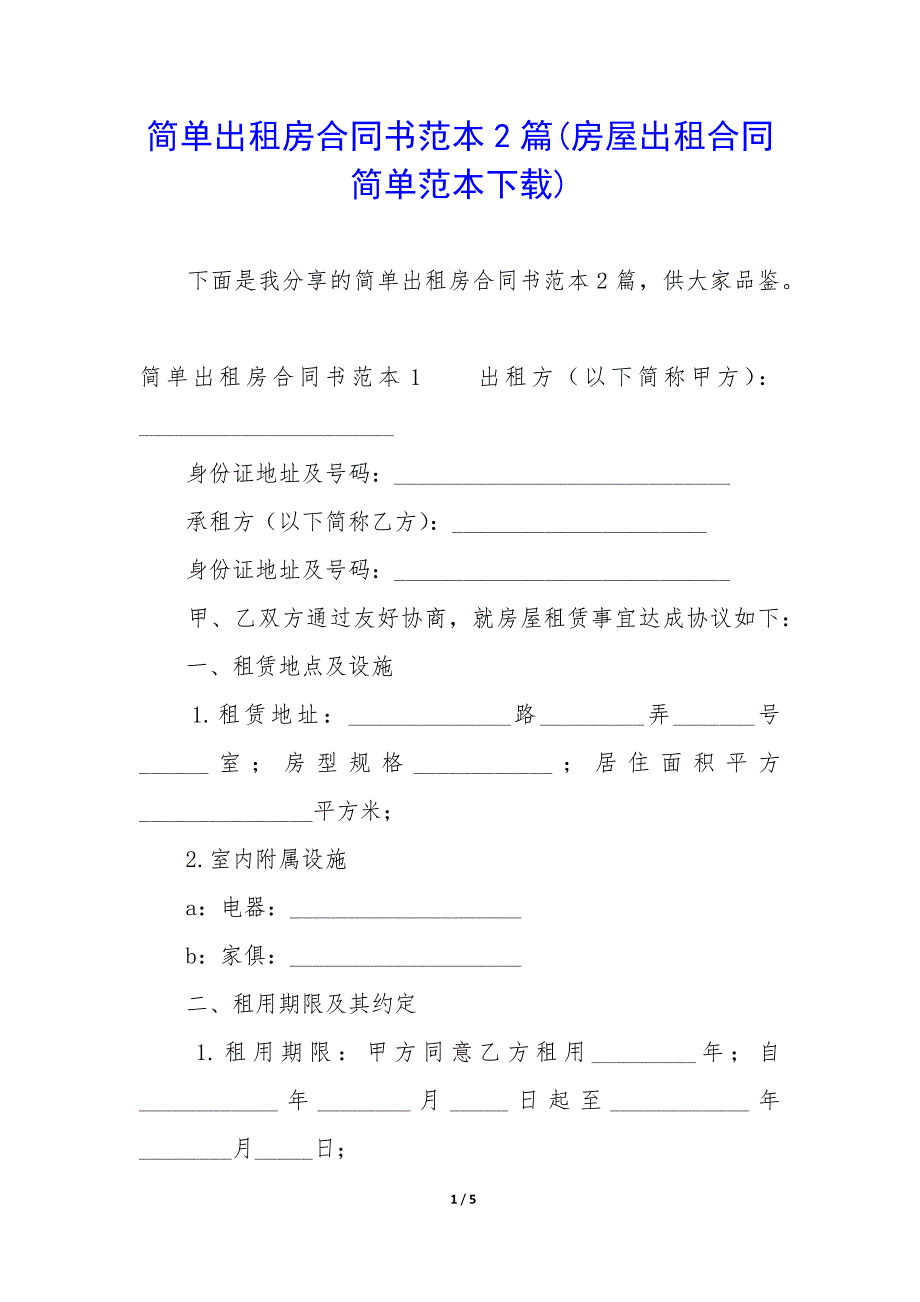 简单出租房合同书范本 2 篇(房屋出租合同
简单范本下载)
下面是我分享的简单出租房合同书范本 2 篇，供大家品鉴。
简单出租房合同书范本 1　　出租方（以下简称甲方）：
______________________
身份证地址及号码：_____________________________
承租方（以下简称乙方）：______________________
身份证地址及号码：_____________________________
甲、乙双方通过友好协商，就房屋租赁事宜达成协议如下：
一、租赁地点及设施
1.租赁地址：______________路_________弄_______号
______室；房型规格____________；居住面积平方
_______________平方米；
2.室内附属设施
a：电器：____________________
b：家俱：____________________
二、租用期限及其约定
1.租用期限：甲方同意乙方租用_________年；自
____________年________月_____日起至____________年
________月_____日；
1 / 5